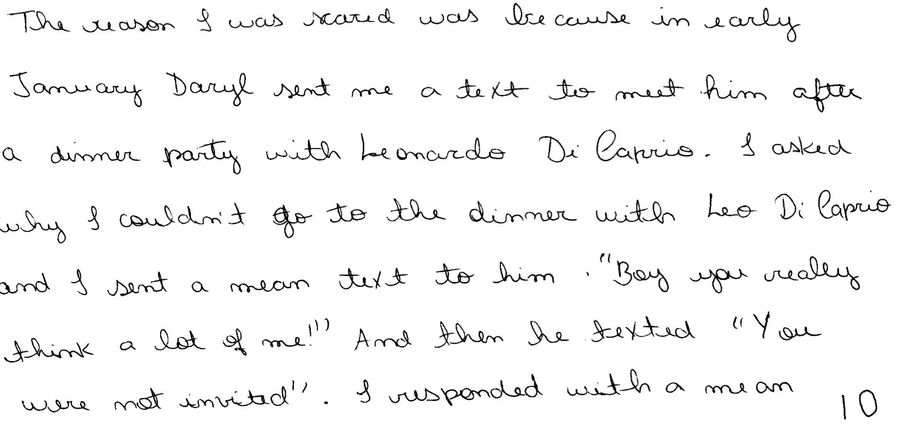 The reason I was scared was because in early
January Daryl sent me a text to meet him after
a dinner party with Leonardo Di Caprio. I asked
why I couldn't go to the dinner with Leo Di Caprio
and I sent a mean text to him. "Boy you really
think a lot of me!" And then he texted "You
were not invited". I responded with a mean
10